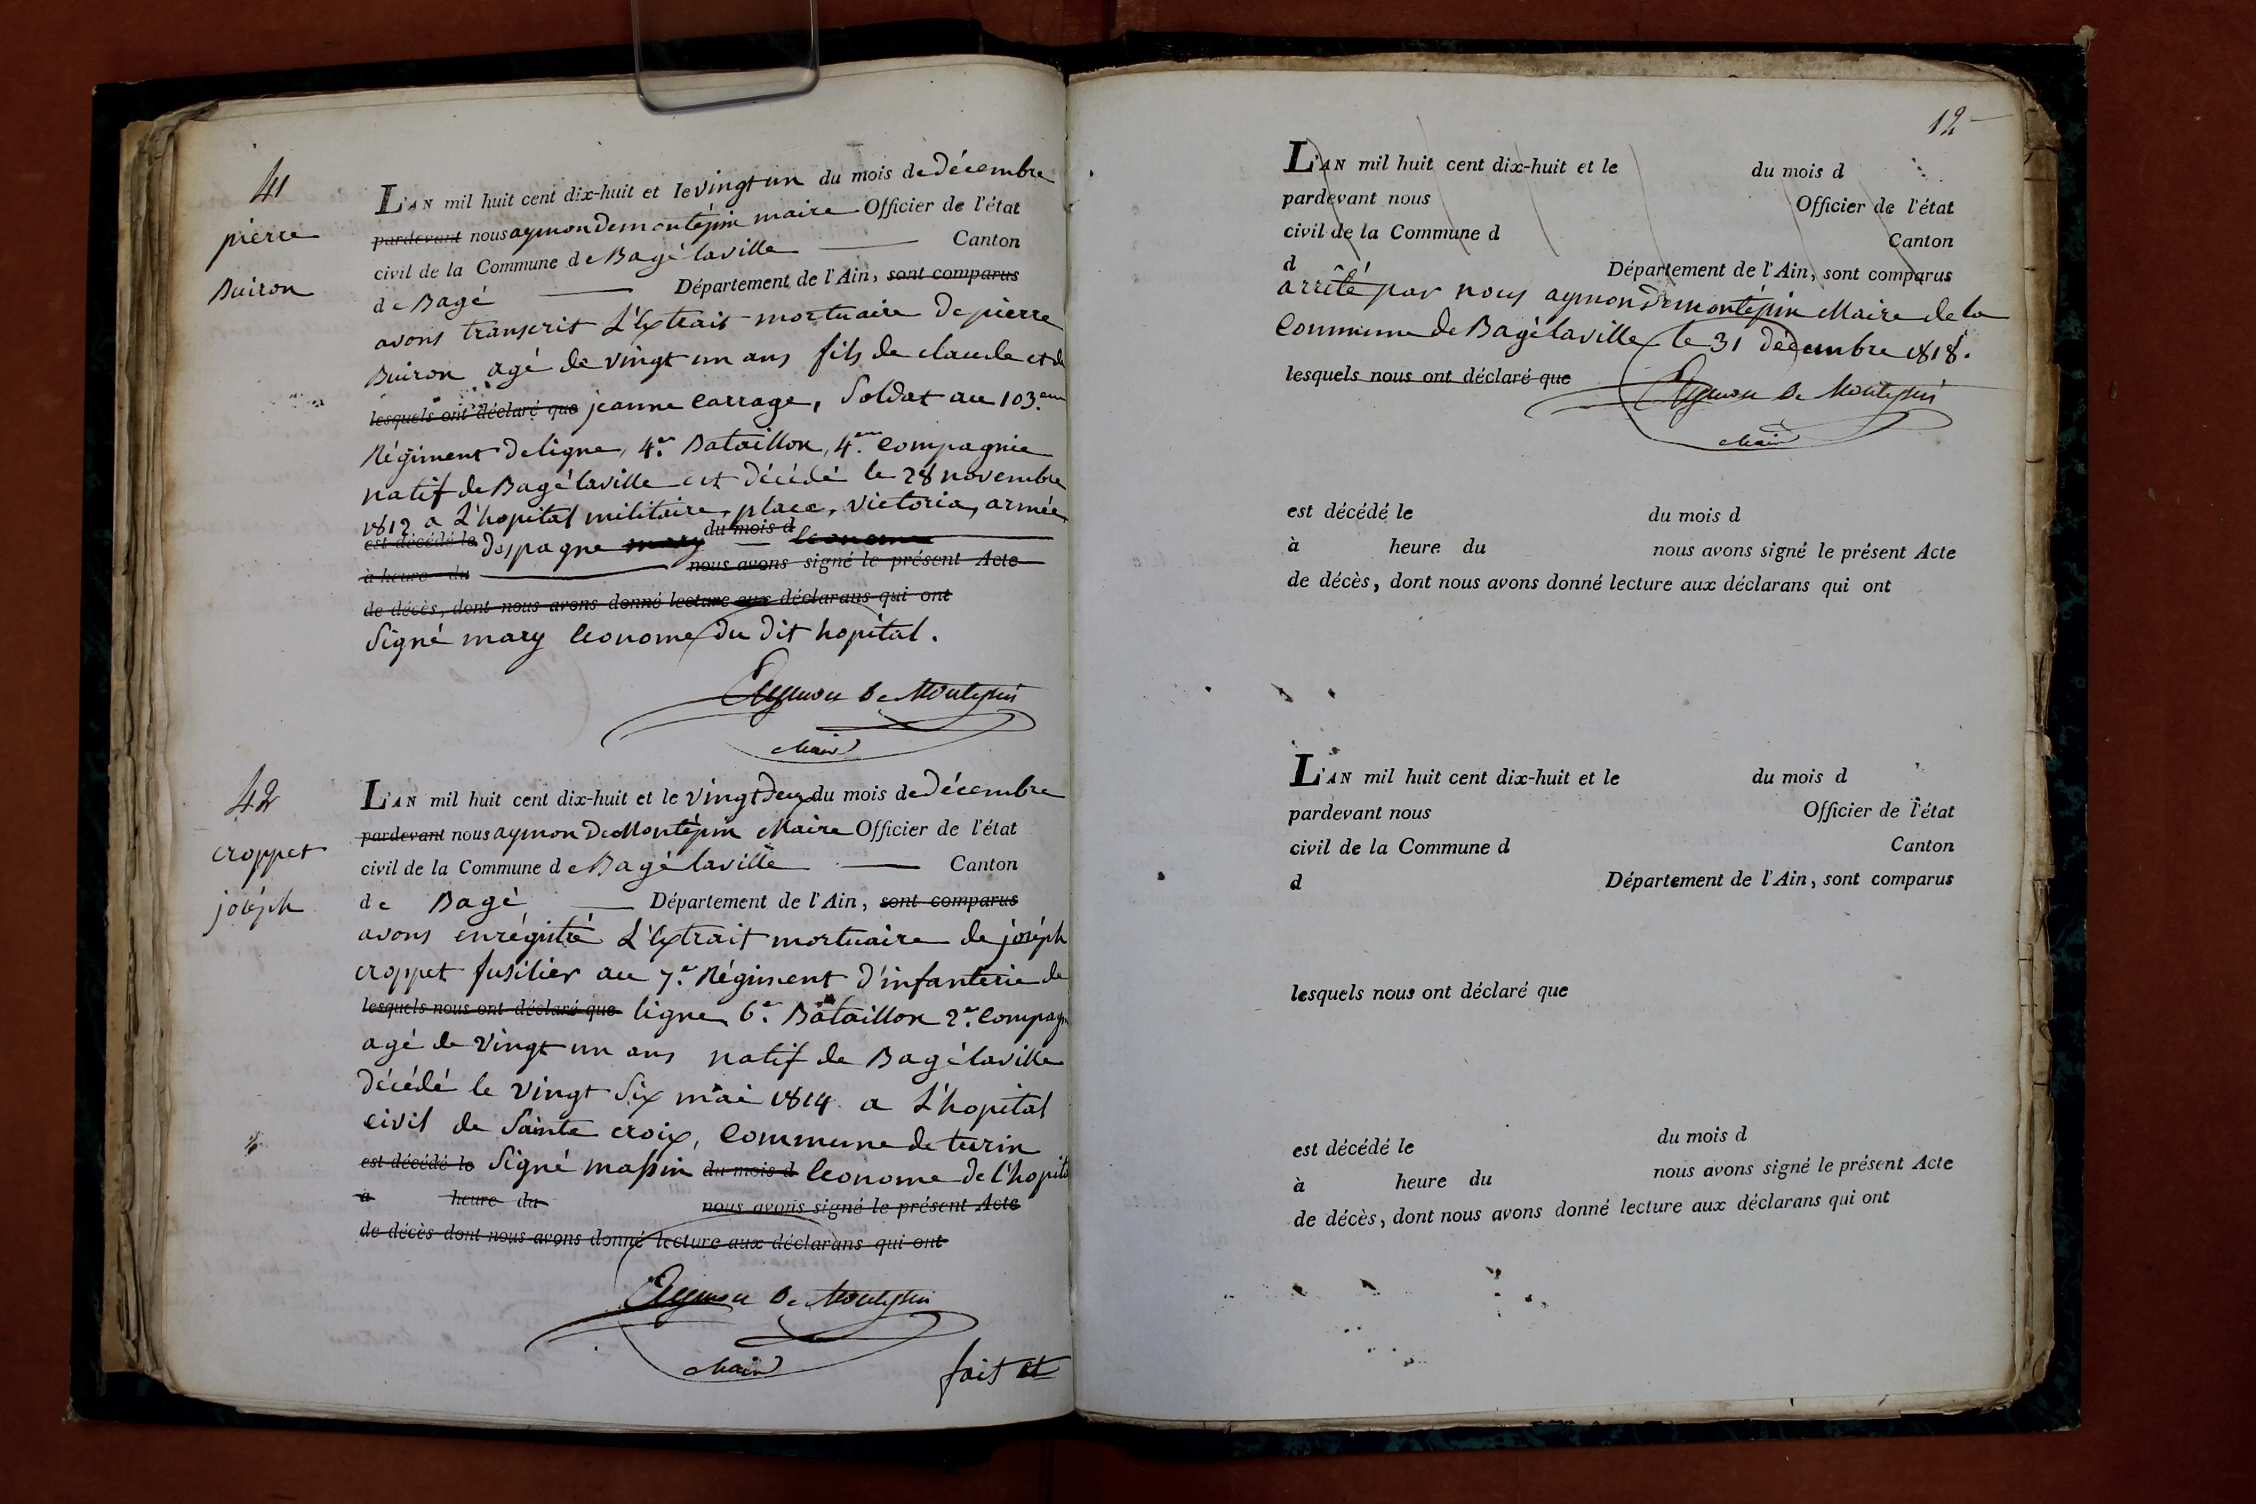 41
pierre
Buiron
L'AN mil huit cent dix-huit et le vingt un du mois de décembre
pardevant nous aymon Demontépin maire Officier de l'état
civil de la Commune de Bagé laville Canton
de Bagé Département de l'Ain, sont comparus
avons transcrit L'Extrait mortuaire De pierre
Buiron agé de vingt un ans fils de claude et de
lesquels ont déclaré que jeanne Carrage, Soldat au 103.eme
Régiment Deligne, 4.e Bataillon, 4.eme Compagnie
natif de Bagé laville est Décédé le 28 novembre
1812 a L'hopital militaire, place, Victoria, armée
est décédé le Despagne mary du mois d Econome
à heure du nous avons signé le présent Acte
de décès, dont nous avons donné lecture aux déclarans qui ont
Signé mary Econome du Dit hopital.
Aymon De Montépin
Maire
42
croppet
joséph
L'AN mil huit cent dix-huit et le vingt Deux du mois de décembre
pardevant nous aymon De Montépin Maire Officier de l'état
civil de la Commune de Bagé laville Canton
de Bagé Département de l'Ain, sont comparus
avons enrégitré L'Extrait mortuaire de joséph
croppet fusilier au 7.e Régiment D'infanterie de
lesquels nous ont déclaré que ligne, 6.e Bataillon 2.e Compagn
agé de vingt un ans natif de Bagé laville
Décédé le vingt Six mai 1814 a L'hopital
civil de Sainte croix, Commune de turin
est décédé le Signé massin du mois d Econome de l'hopital
à heure du nous avons signé le présent Acte
de décès dont nous avons donné lecture aux déclarans qui ont
Aymon De Montépin
Maire
fait et
12
L'AN mil huit cent dix-huit et le du mois d
pardevant nous Officier de l'état
civil de la Commune d Canton
d Département de l'Ain, sont comparus
arrêté par nous aymon Demontépin Maire de la
Commune de Bagé laville le 31 décembre 1818.
lesquels nous ont déclaré que
Aymon De Montépin
Maire
est décédé le du mois d
à heure du nous avons signé le présent Acte
de décès, dont nous avons donné lecture aux déclarans qui ont
L'AN mil huit cent dix-huit et le du mois d
pardevant nous Officier de l'état
civil de la Commune d Canton
d Département de l'Ain, sont comparus
lesquels nous ont déclaré que
est décédé le du mois d
à heure du nous avons signé le présent Acte
de décès, dont nous avons donné lecture aux déclarans qui ont